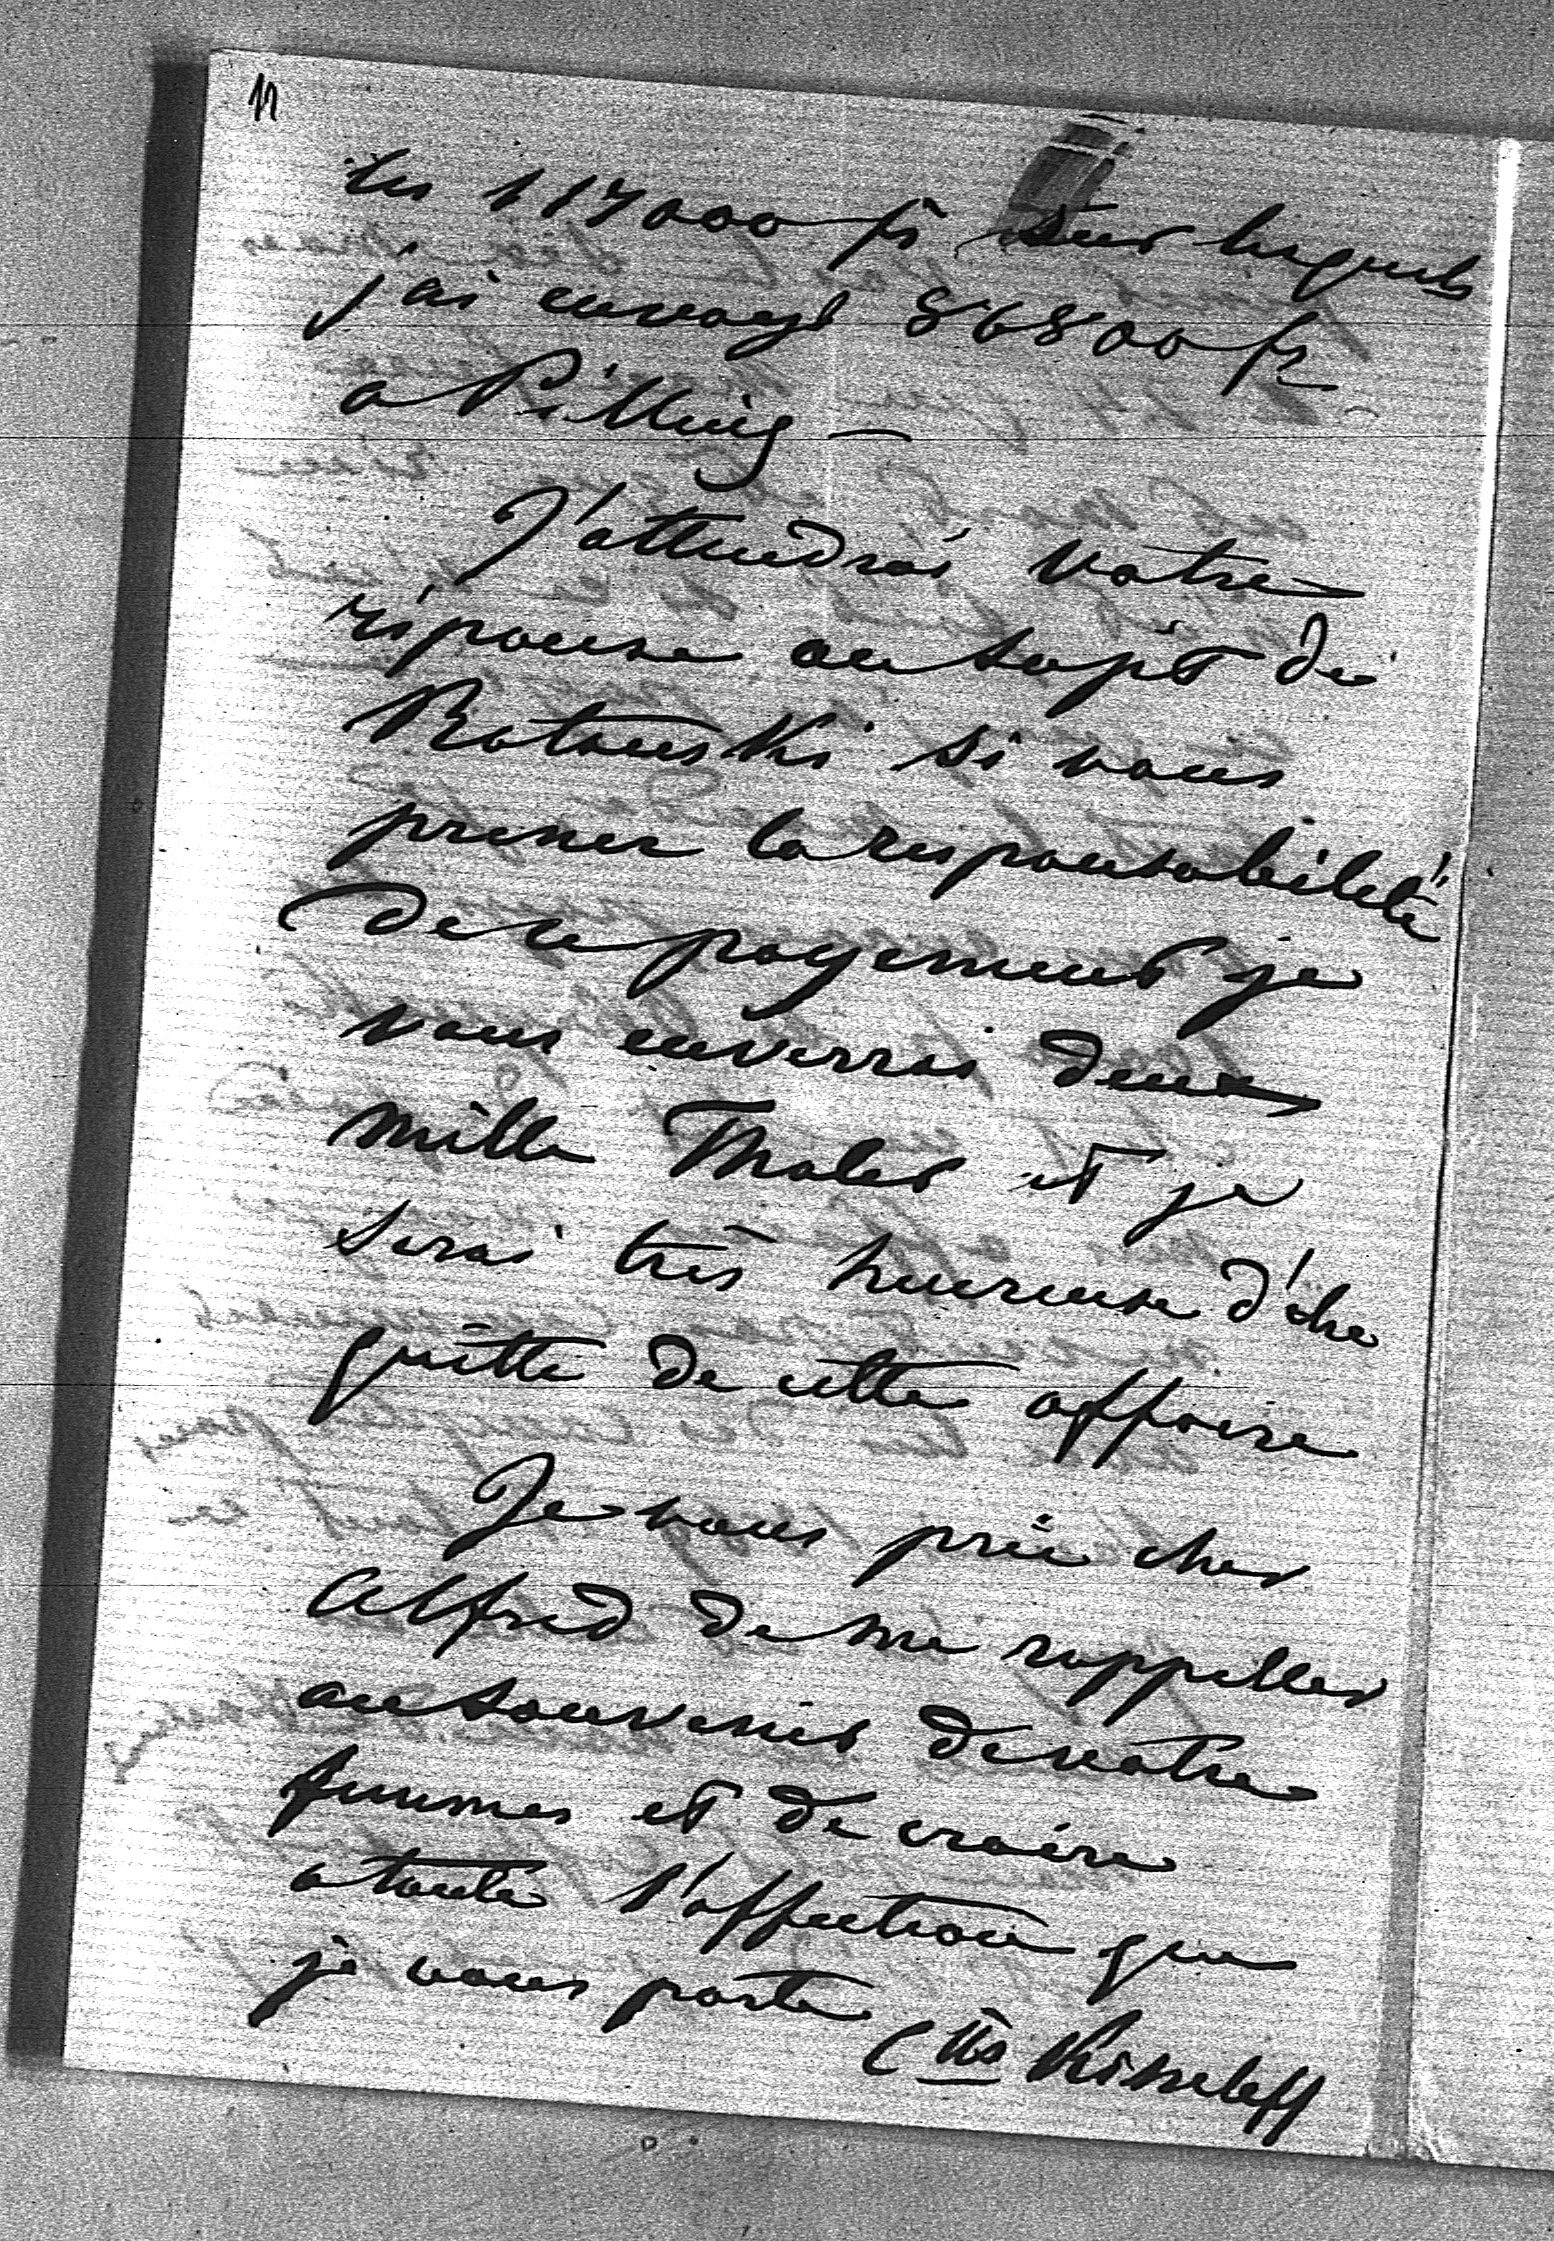 les 117000 fr sur lesquels
j'ai envoyé 86800 fr
a Pilling —
J'attendrai votre
réponse au sujet de
Ratouski si vous
prenez la responsabileté
de ce payement je
vous enverrai deux
mille Thaler et je
serai très heureuse d'être
quitte de cette affaire
Je vous prie cher
Alfred de me rappeller
au souvenir de votre
femme et de croire
a toute l'affection que
je vous porte
Ctss Kisseleff